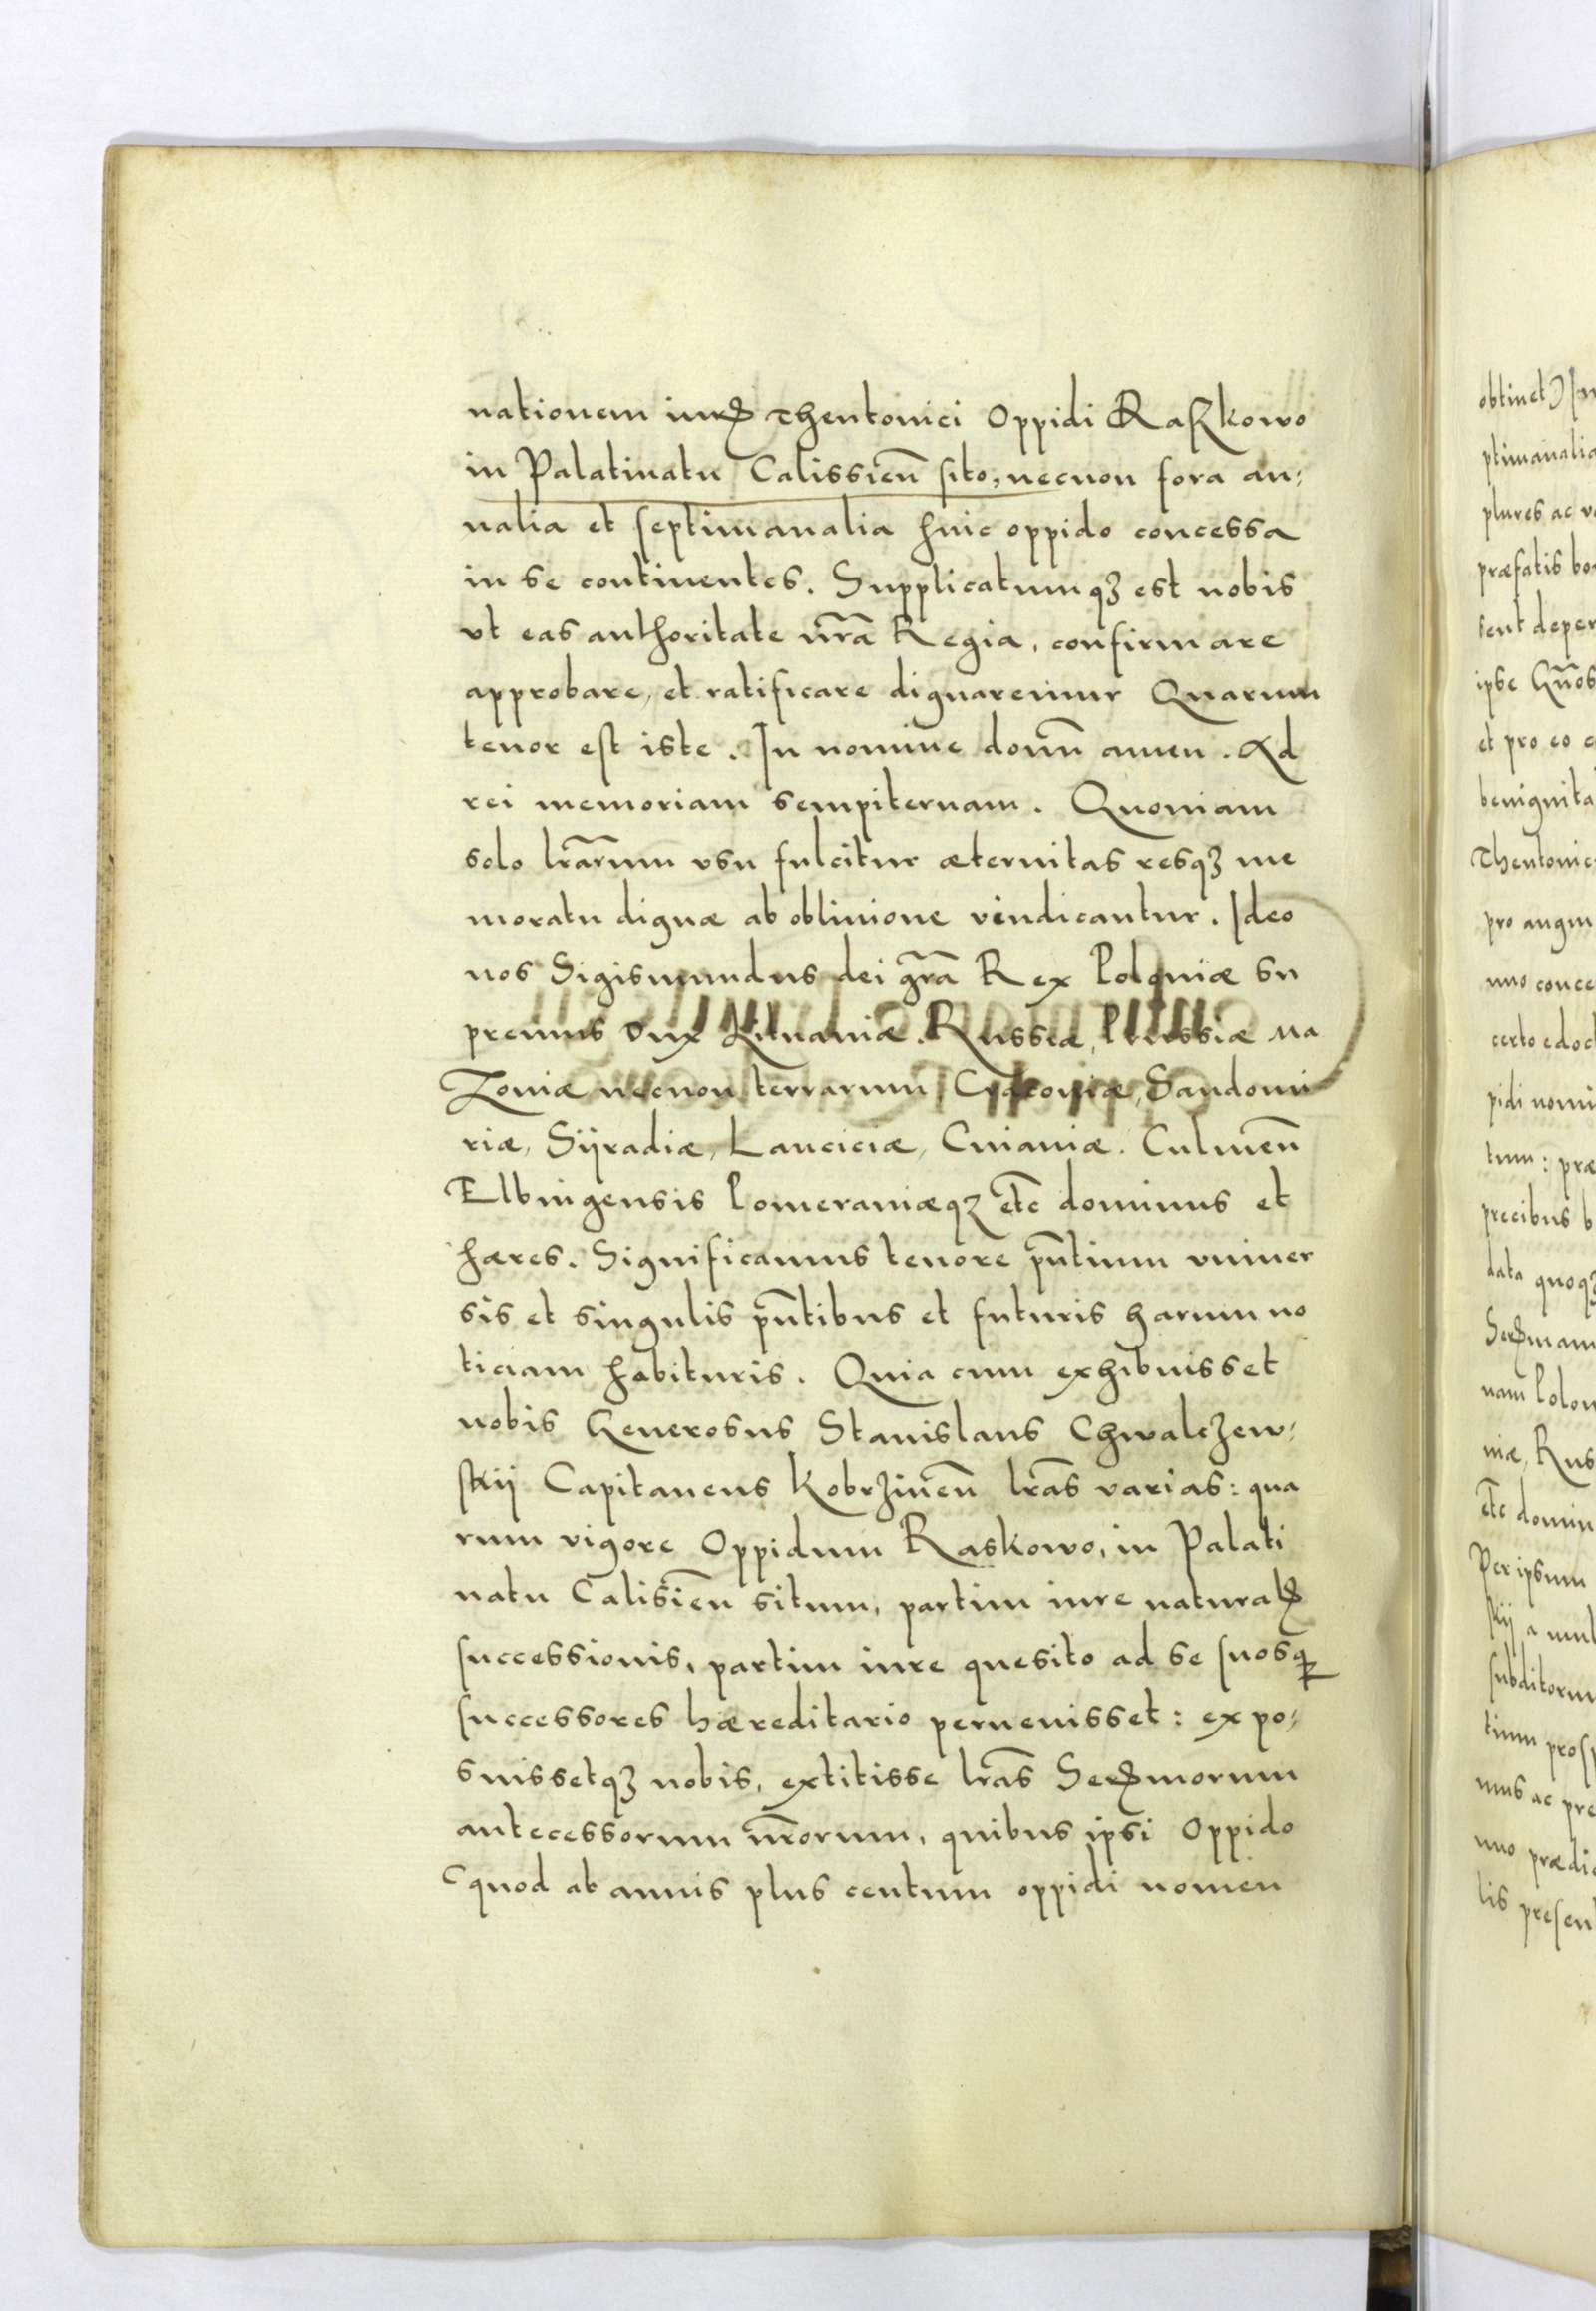 nationem iurꝭ Theutonici Oppidi Raszkowo
in Palatinatu Calissien̄ sito, necnon fora an⸗
nualia et septimanalia huic oppido concessa
in se continentes. Supplicatumqꝫ est nobis
vt eas authoritate nr̄a Regia, confirmare
approbare, et ratificare dignaremur Quarum
tenor est iste. In nomine domn̄ amen. Ad
rei memoriam sempiternam. Quoniam
solo lr̄arum vsu fulcitur æternitas resqꝫ me
moratu dignæ ab obliuione vindicantur. Ideo
nos Sigismundus dei gr̄a Rex Poloniæ su
premus Dux Lituaniæ. Russiæ, Prussiæ Ma
Zoniæ necnon terrarum Cracoviæ, Sandomi
riæ, Sÿradiæ, Lanciciæ, Cuiauiæ. Culmen̄
Elbingensis Pomeraniæqꝫ etc̄ dominus et
hæres. Significamus tenore pn̄tium vniuer
sis et singulis pn̄tibus et futuris harum no
ticiam habituris. Quia cum exhibuisset
nobis Generosus Stanislaus Chwalczew⸗
skij Capitaneus Kobrzinen̄ lr̄as varias: qua
rum vigore Oppidum Raskowo, in Palati
natu Calisien̄ situm, partim iure naturalꝭ
successionis, partim iure quesito ad se suosqꝫ
successores hæreditario peruenisset: expo⸗
suissetqꝫ nobis, extitisse lr̄as Serꝭmorum
antecessorum nr̄orum, quibus ipsi Oppido
(quod ab annis plus centum oppidi nomen
obtinet) In
ptimanalia
plures ac v
præfatis bo
sent deper
ipse Gn̄os
et pro eo
benignita
Theutonic
pro augm
uno conce
certo edoc
pidi nomi
tum: præ
precibus b
data quoqꝫ
Serꝭmam
nam Polon
niæ, Rus
etc̄ domin
Per ipsum
skij a mul
subditorum
tium prosp
mus ac pre
uno prædi
lis presen